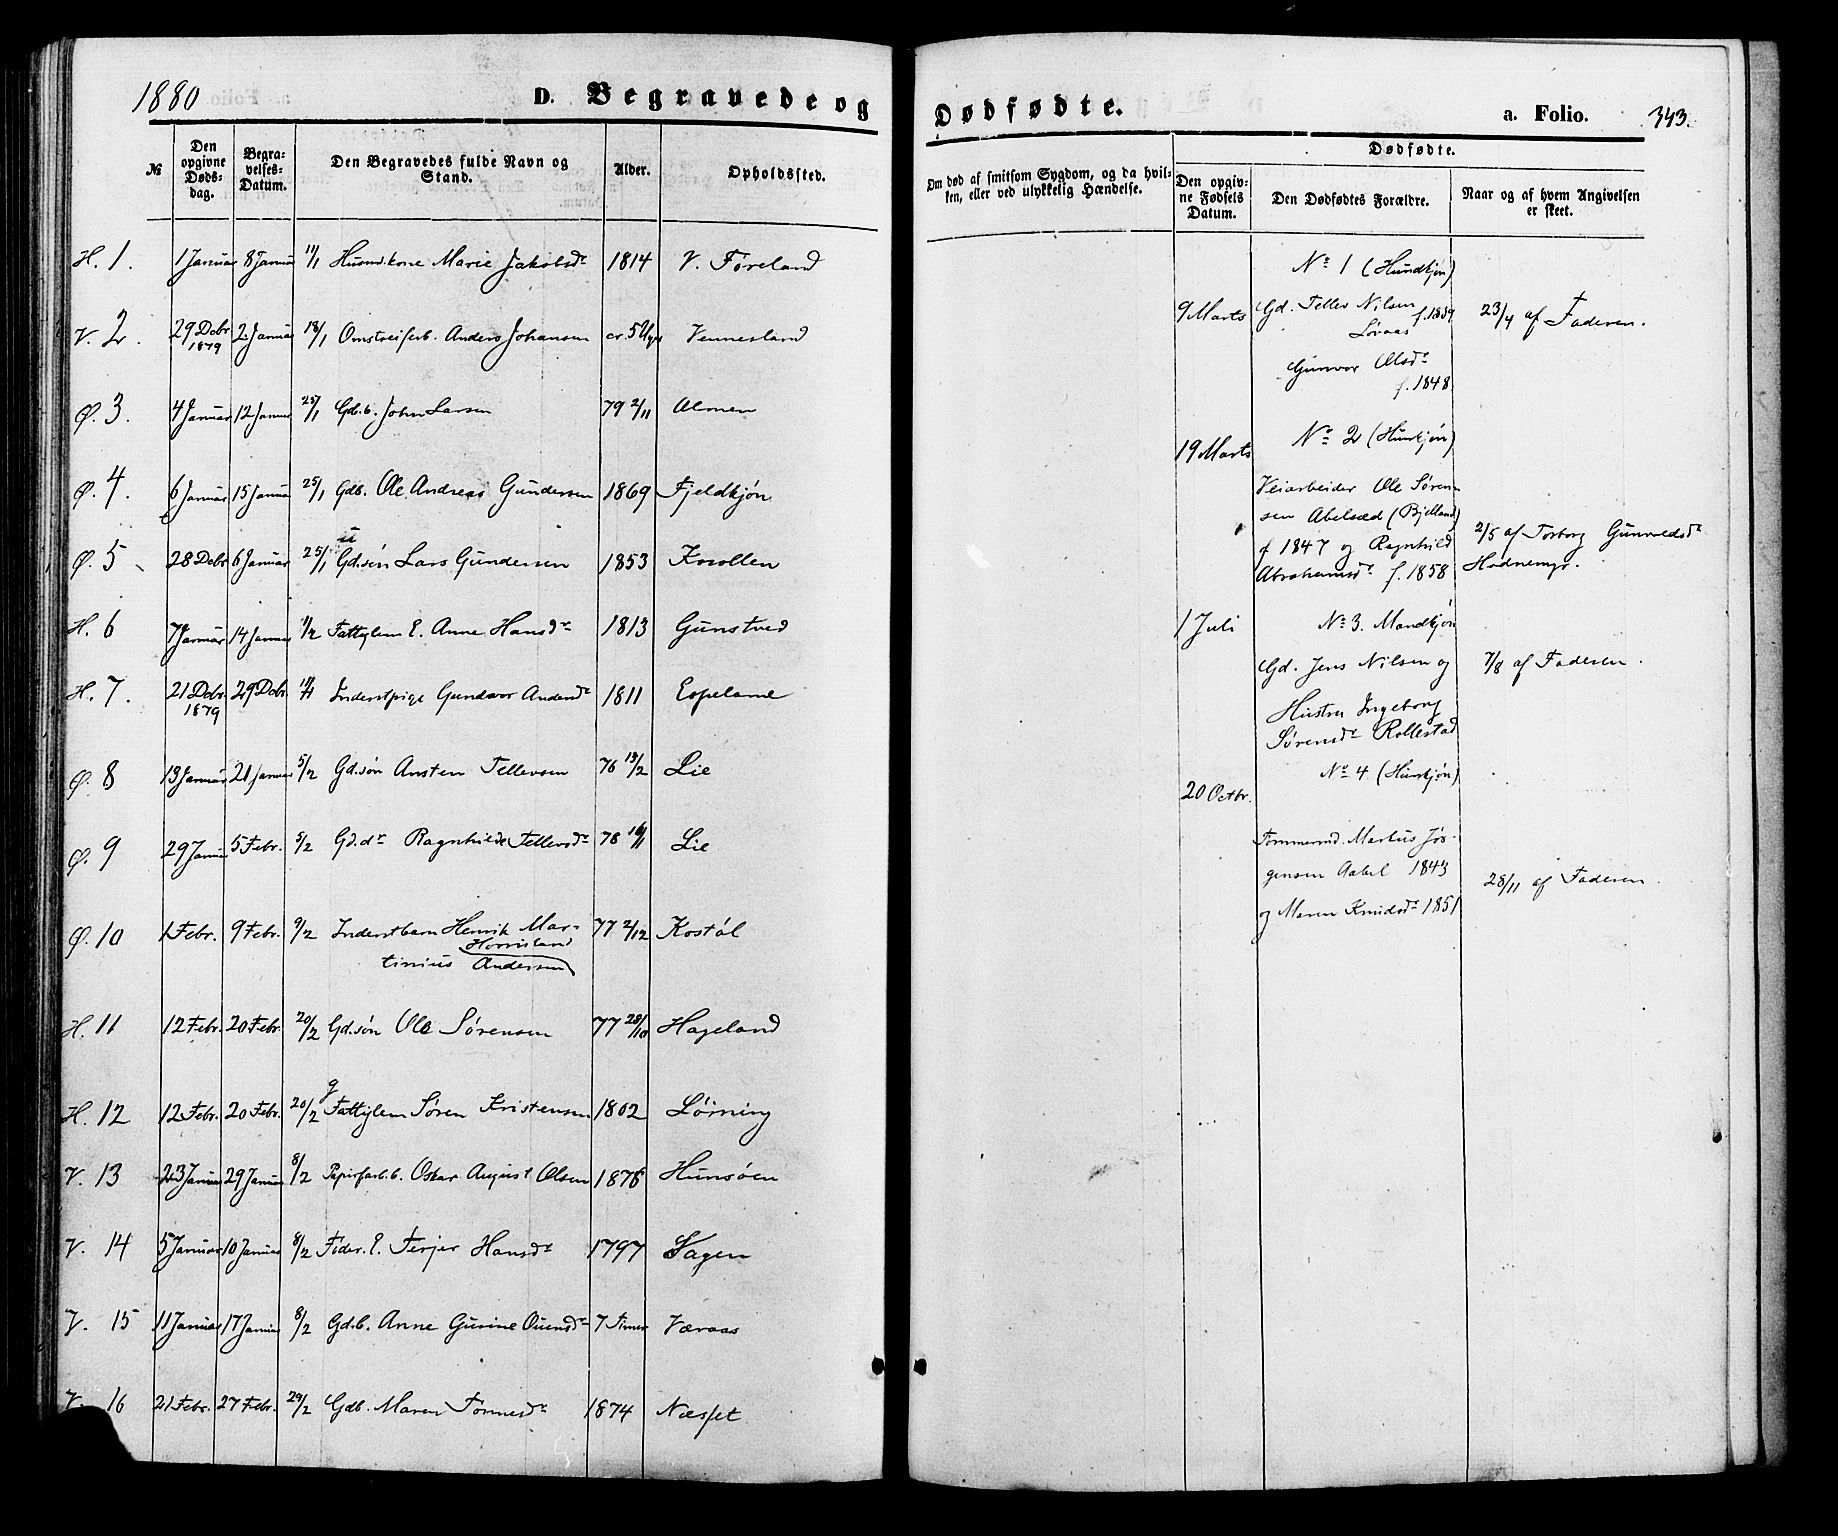 1880
D. Begravede og
Dødfødte.
a. Folio. 343.
№
Den opgivne Døds-dag.
Begra-velses-Datum.
Den Begravedes fulde Navn og Stand.
Alder.
Opholdssted.
Om død af smitsom Sygdom, og da hvil-
ken, eller ved ulykkelig Hændelse.
Dødfødte.
Den opgiv-ne Fødsels Datum.
Den Dødfødtes Forældre.
Naar og af hvem Angivelsen er skeet.
H. 1. 1 Januar 8 Januar 11/1 Husmd.kone Marie Jakobsdr 1814 V. Føreland
V. 2. 29 Debr 1879 2 Januar 18/1 Omstreiferb. Anders Johansen cr. 5 Uger Vennesland
Ø. 3. 4 Januar 12 Januar 25/1 Gd.b. John Larsen 79 2/11 Almen
Ø. 4. 6 Januar 15 Januar 25/1 Gdb. Ole Andreas Gundersen 1869 Fjeldkjøn
Ø. 5 28 Debr 6 Januar 25/1 Gd.søn Lars Gundersen 1853 Krollen
H. 6 7 Januar 14 Januar 1/2 Fattiglem E. Anne Hansdr 1813 Gunstved
H. 7. 21 Debr. 1879 29 Debr. Inderstpige Gundvor Andersdr 1811 Espeland
Ø. 8 13 Januar 21 Januar 5/2 Gd.søn Ansten Tellevsen 76 13/2 Lie
Ø. 9 29 Januar 5 Febr. 5/2 Gd.dr Ragnhilde Tellevsdr 78 Lie
Ø. 10 1 Febr. 9 Febr. 9/2 Inderstbarn Henrik Mar-
Horrisland
tinius Andersen 77 2/12 Kostøl
H. 11 12 Febr. 20 Febr. 20/2 Gd.søn Ole Sørensen 77 28/10 Hageland
H. 12 12 Febr. 20 Febr. 20/2 Fattiglem Søren Kristensen 1802 Lørning
V. 13 23 Januar 29 Januar 8/2 Papirfarb.b. Oskar August Olsen 1876 Hunsøen
V. 14 5 Januar 10 Januar 8/2 Føder. E. Terjer Hansdr 1797 Hagen
V. 15 11 Januar 17 Januar 8/2 Gd.b. Anne Gurine Ouensdr 7 Timer Væraas
V. 16 21 Febr. 27 Febr. 29/2 Gdb. Maren Tønnesdr 1874 Næsset
No 1 (Hundkjøn)
9 Marts Gd. Tellev Nilsen f. 1839 23/4 af Faderen.
Løvaas
Gunvor Olsdr
f. 1848
No 2 (Hunkjøn)
19 Marts
Veiarbeider Ole Søren-
sen Abelsæd (Bjelland)
f 1847 og Ragnhild 2/5 af Torborg Gunvaldsdr
Abrahamsdr f. 1858 Hodnemyr.
1 Juli No 3. Mandkjøn
Gd. Jens Nilsen og 7/8 af Faderen.
Hustru Ingeborg
Sørensdr Rollestad
No 4 (Hunkjøn)
20 Octbr.
Tømmermd. Markus Jør-
gensen Aabel 1843 28/11 af Faderen.
og Maren Knudsdr 1851